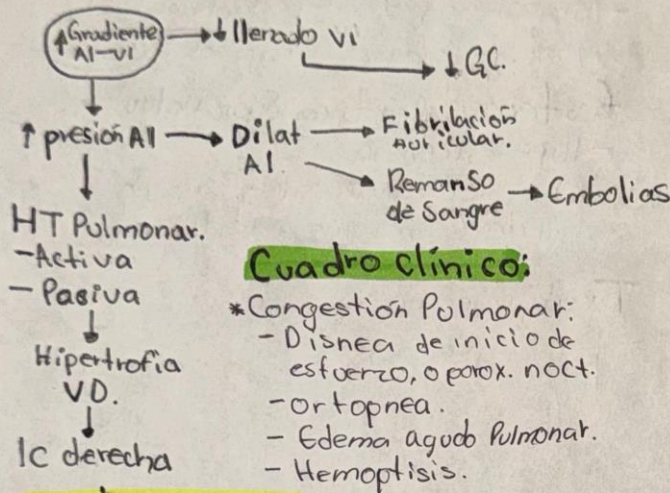 ↑Gradiente → ↓llenado VI
AI-VI
→ ↓GC.
↑ presión AI → Dilat → Fibrilación
AI. Auricular.
→ Remanso → Embolias
de Sangre
HT Pulmonar.
-Activa
- Pasiva
Hipertrofia
VD.
IC derecha
Cuadro clínico:
*Congestión Pulmonar:
- Disnea de inicio de
esfuerzo, o parox. noct.
-ortopnea.
- Edema agudo Pulmonar.
- Hemoptisis.